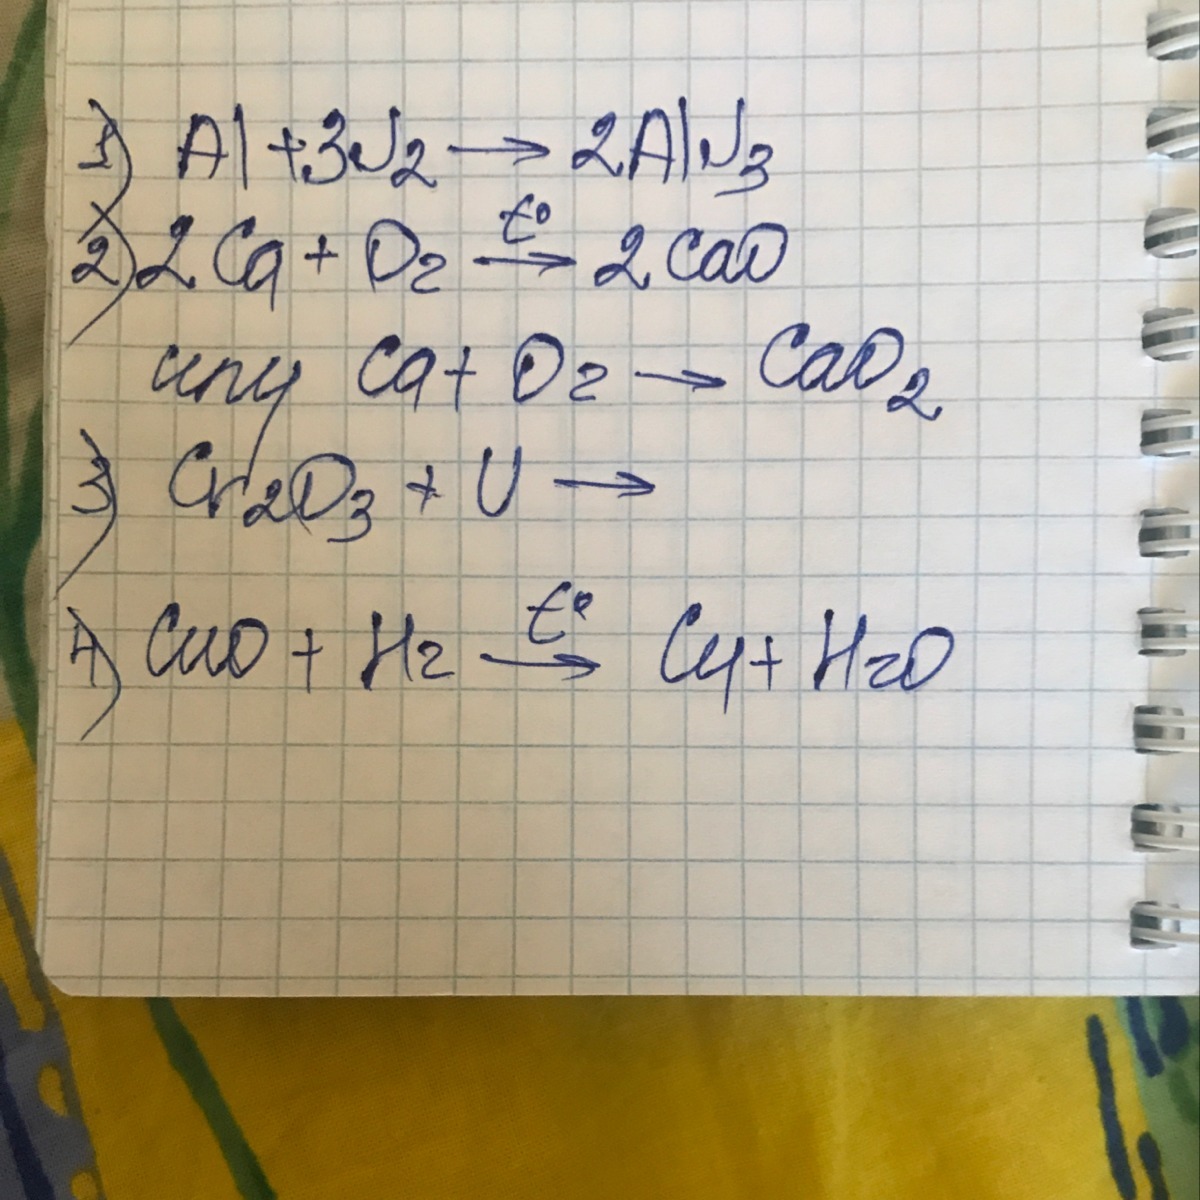 1) Al + 3N2 → 2AlN3
2) 2Ca + O2 t° → 2CaO
или Ca + O2 → CaO2
3) Cr2O3 + U →
4) CuO + H2 t° → Cu + H2O